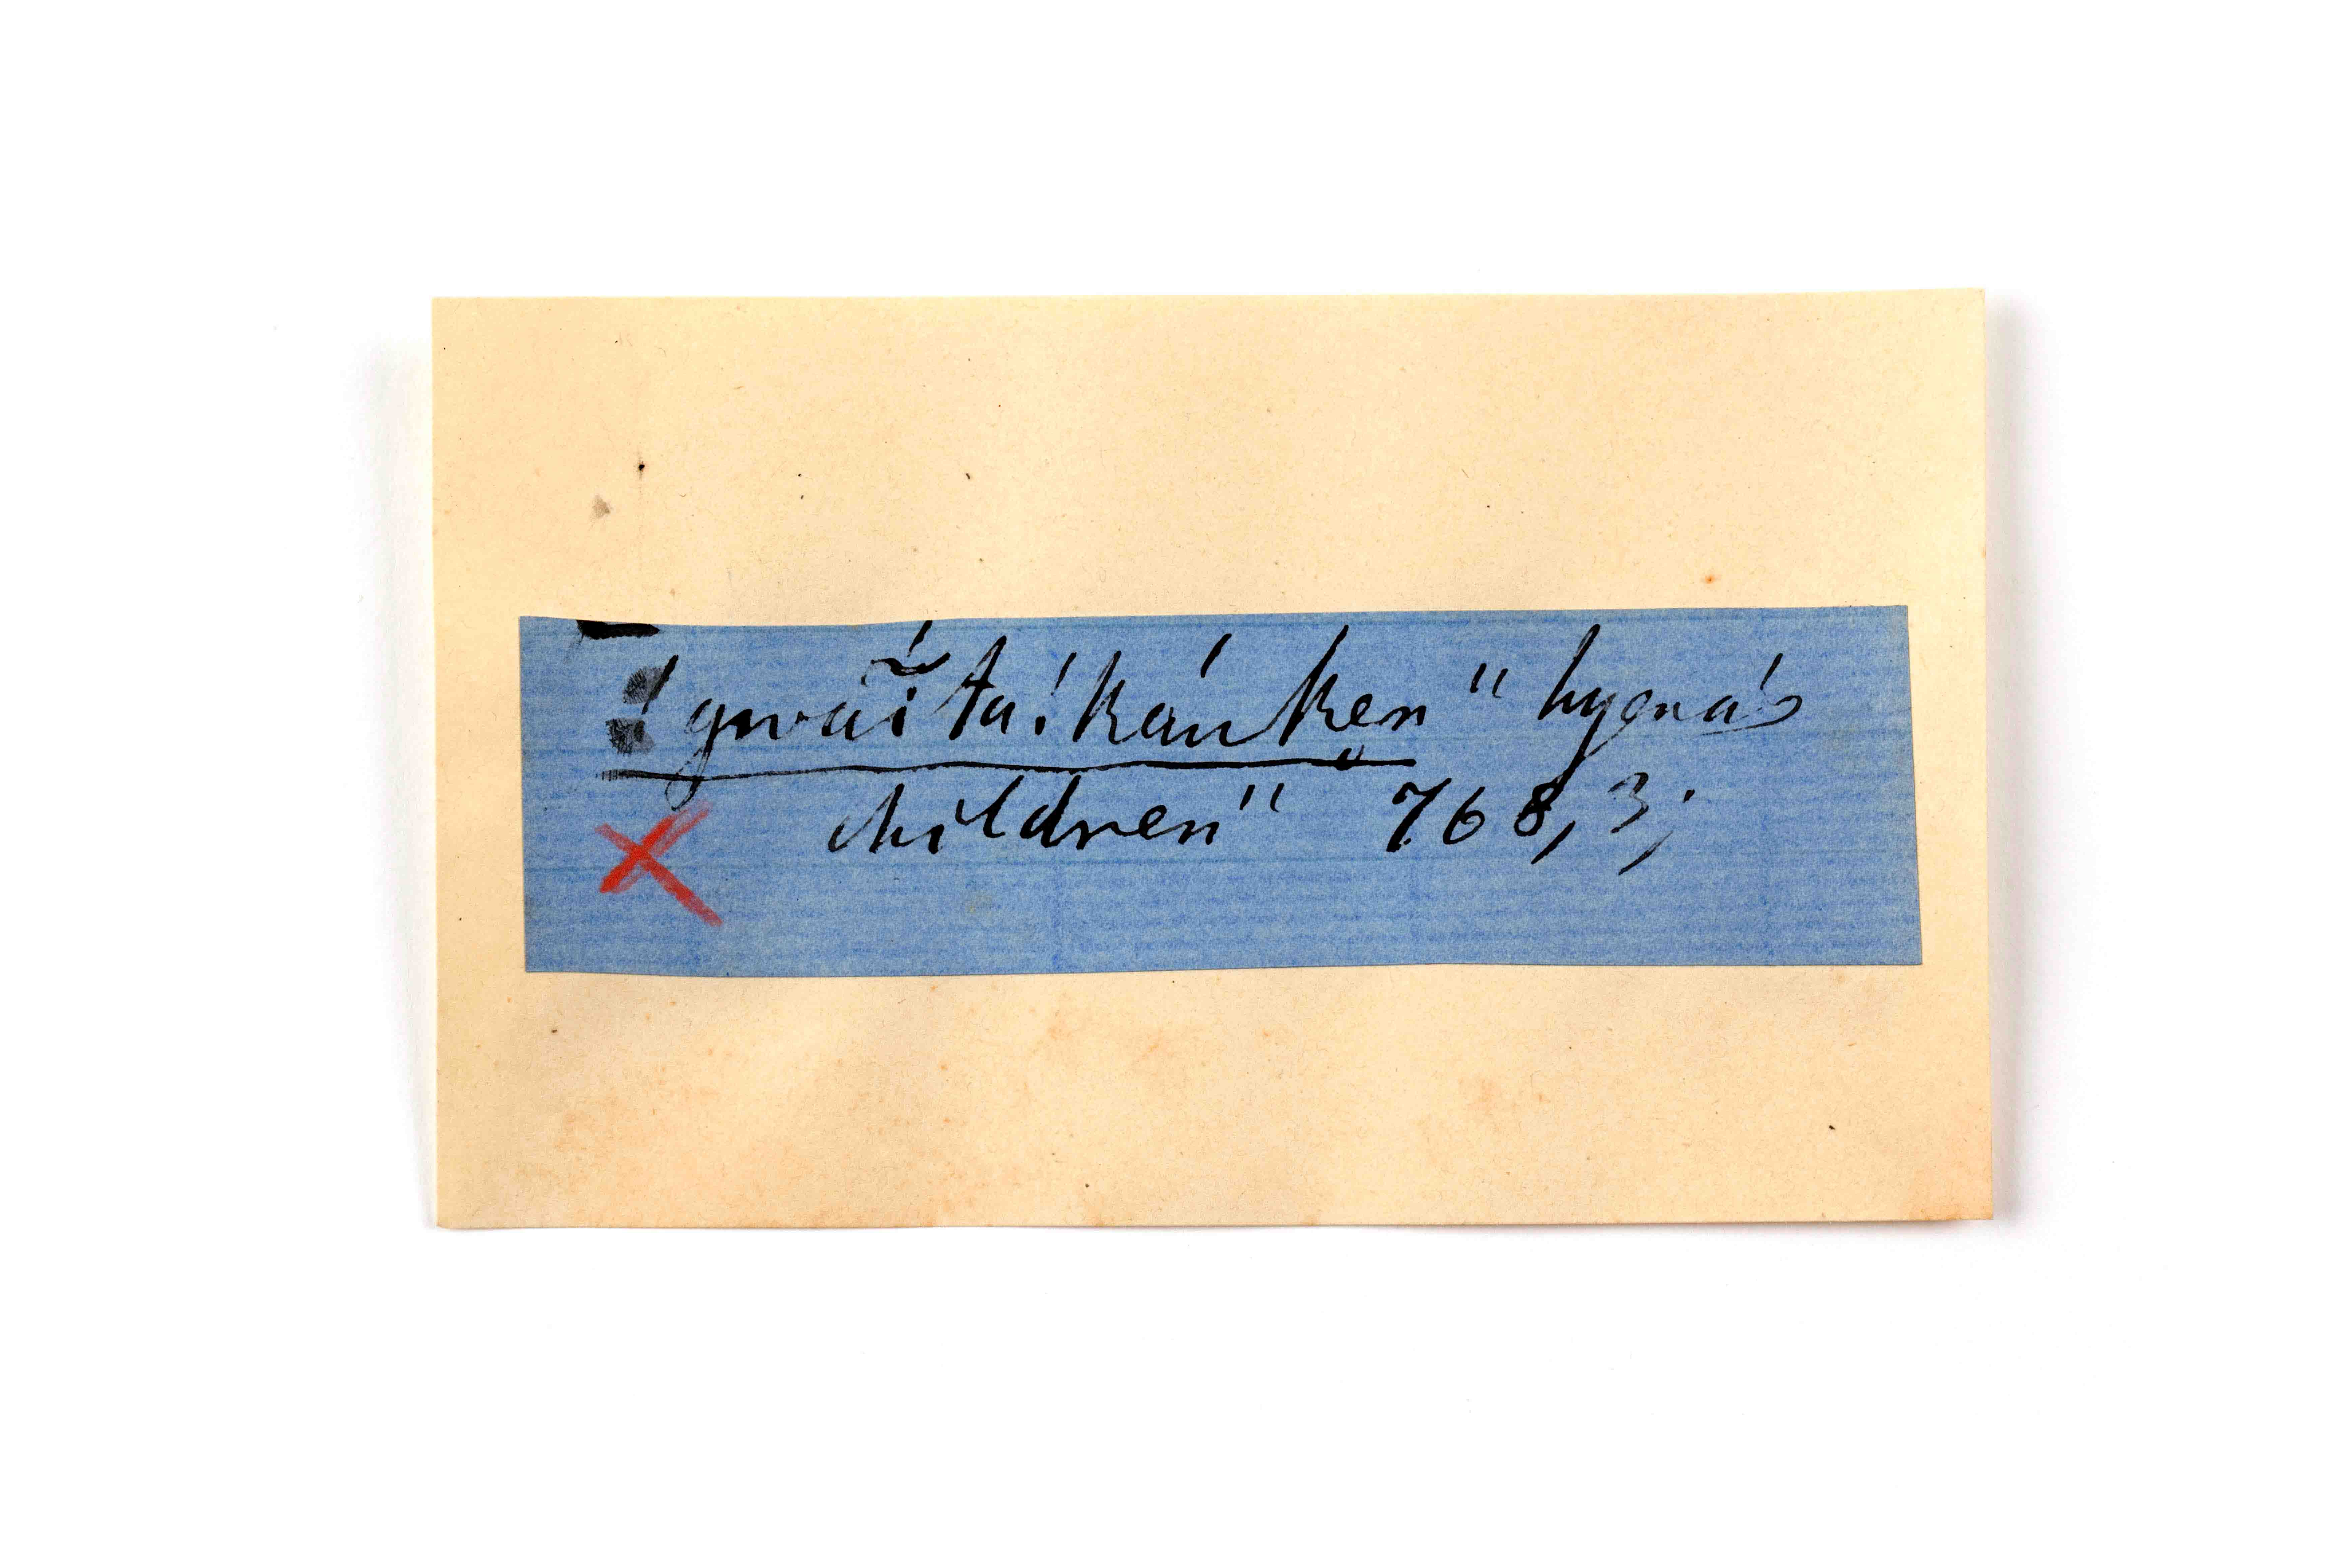 !gwāĭta!káuken" hyena's
children" 768,3;